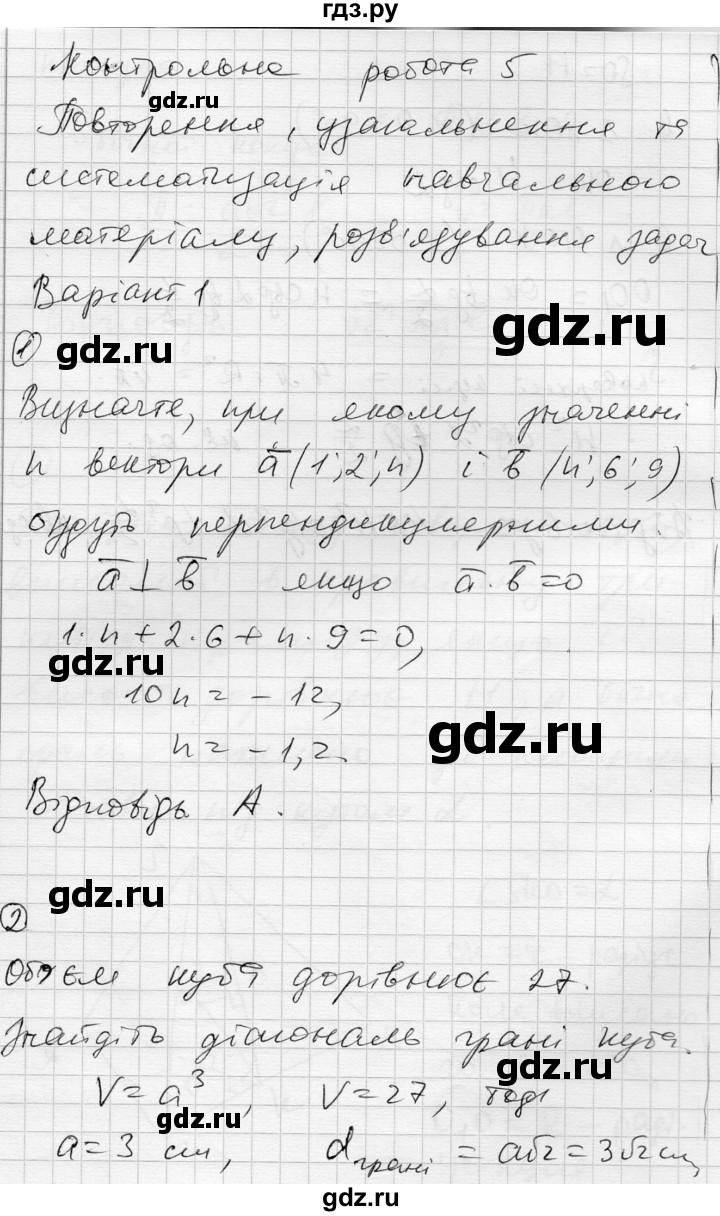 гдз.ру
Контрольна робота 5
gdz.ru
Повторення, узагальнення та
систематизація навчального
матеріалу, розв'язування задач
Варіант 1
gdz.ru
① gdz.ru
Визначте, при якому значенні
n вектори a̅ (1; 2; n) і b̅ (n; 6; 9)
будуть перпендикулярними.
a̅ ⊥ b̅ якщо a̅ · b̅ = 0
1·n + 2·6 + n·9 = 0,
gdz.ru
10n = -12,
gdz.ru
n = -1,2.
Відповідь А.
gdz.ru
②
Об'єм куба дорівнює 27.
Знайдіть діагональ грані куба.
gdz.ru
V = a³, V = 27, тоді
gdz.ru
a = 3 см, d грані = a√2 = 3√2 см,
gdz.ru